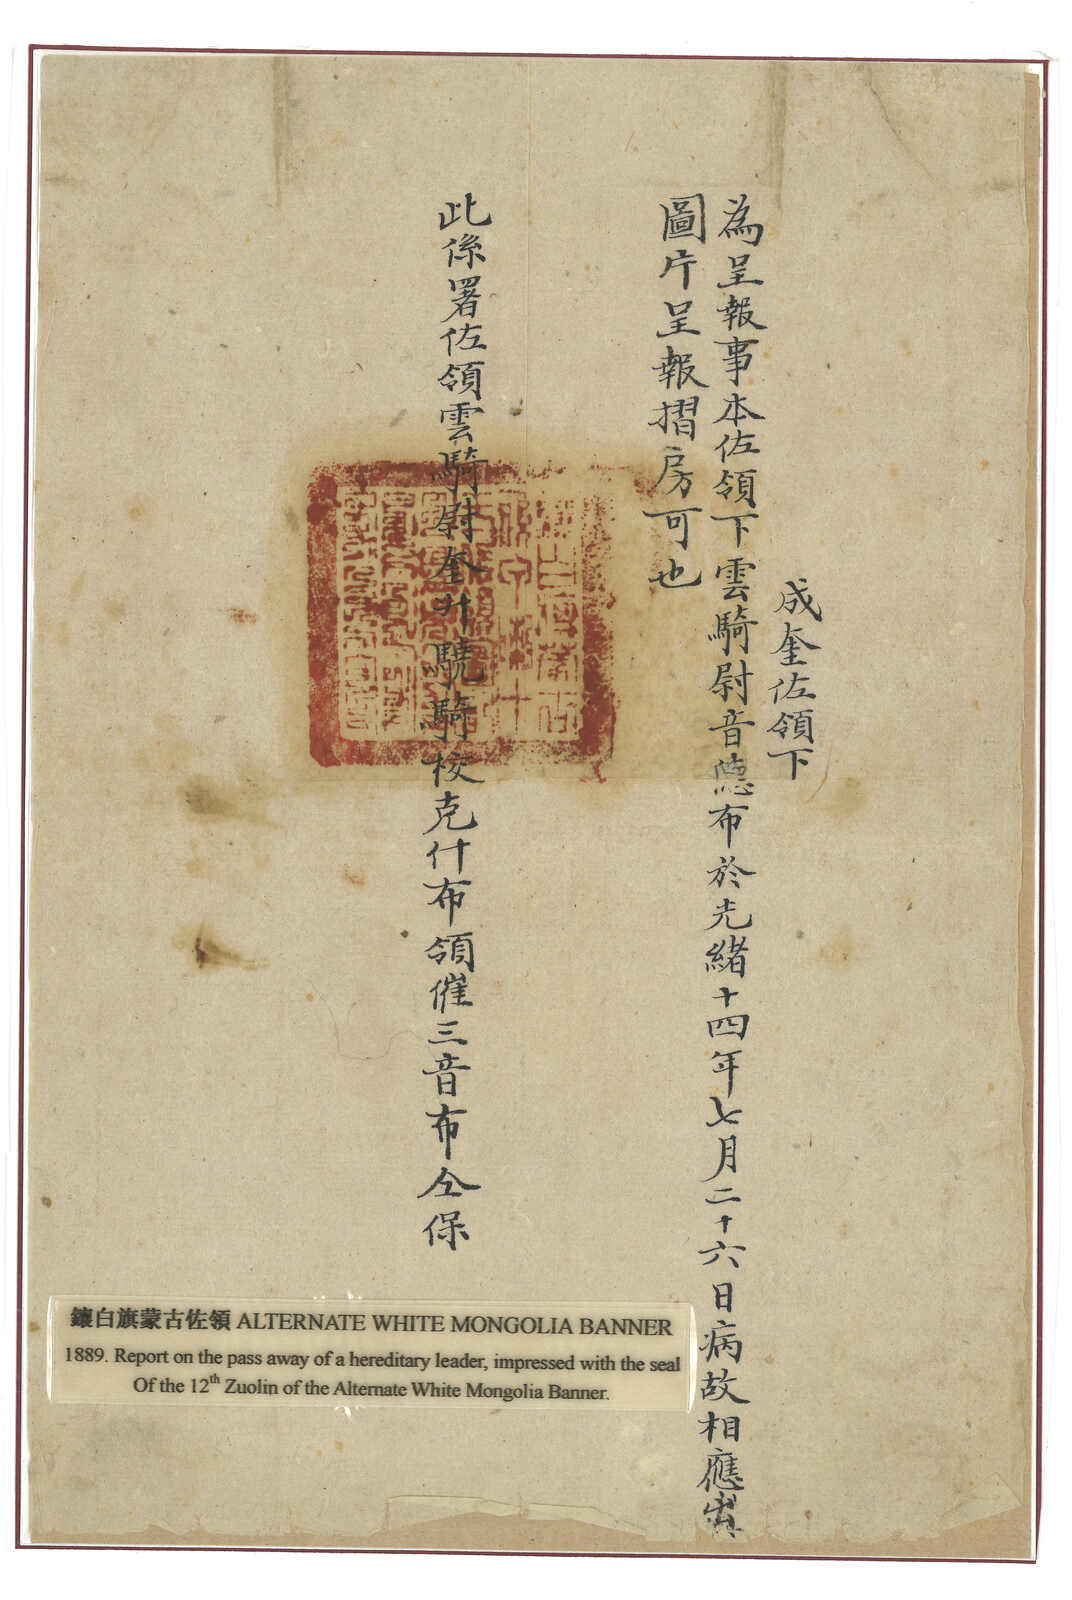 成奎佐領下
為呈報事本佐領下雲騎尉音德布於光緒十四年七月二十六日病故相應出具
圖片呈報摺房可也
此係署佐領雲騎尉奎升驍騎校克什布領催三音布仝保
鑲白旗蒙古佐領 ALTERNATE WHITE MONGOLIA BANNER
1889. Report on the pass away of a hereditary leader, impressed with the seal
Of the 12th Zuolin of the Alternate White Mongolia Banner.